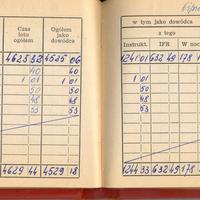 w tym jako dowódca
Czas lotu ogółem
Ogółem jako dowódca
z tego
Instrukt. IFR W noc
4625 32 4525 06 1241 01 632 49 178 1
40 40
1 01 1 01 1 01
50 50 50
48 48 48
53 53 53
4629 44 4529 18 1244 33 632 49 178 1